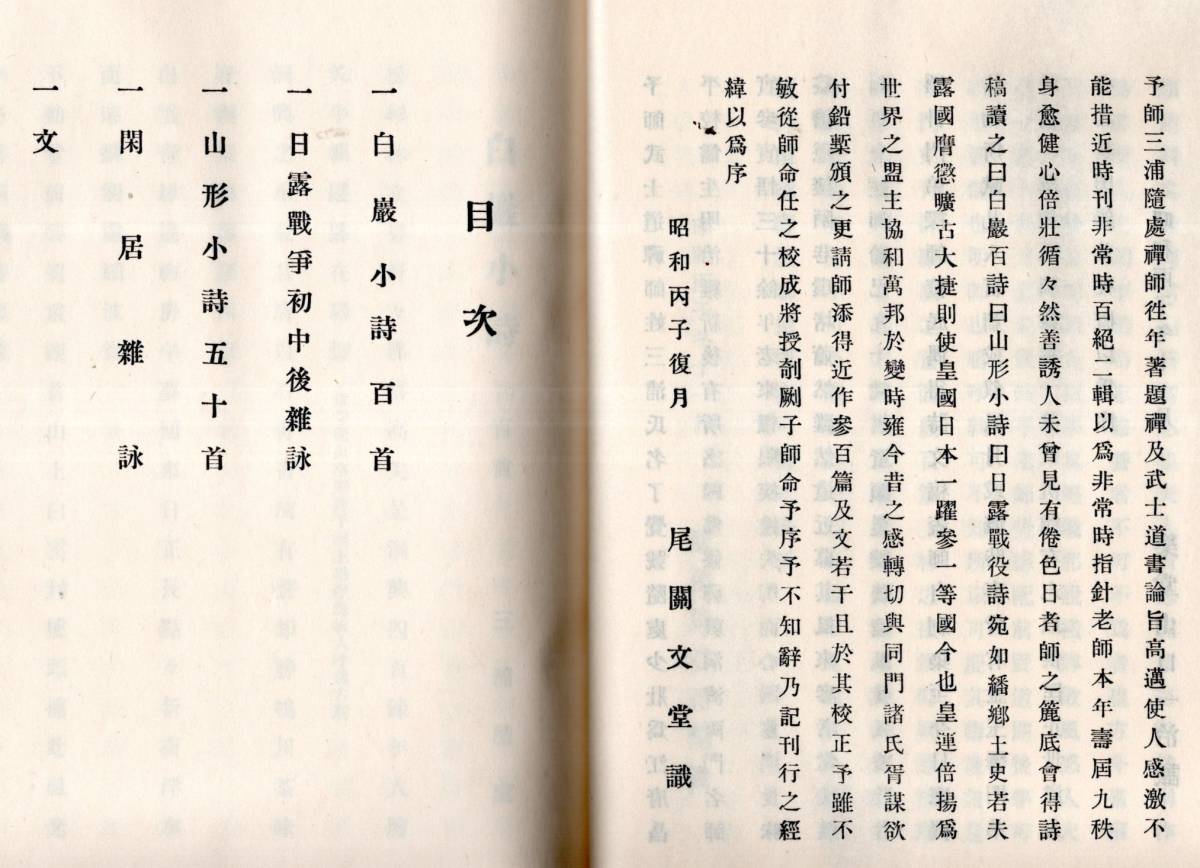 予師三浦隨處禪師徃年著題禪及武士道書論旨高邁使人感激不
能措近時刊非常時百絕二輯以爲非常時指針老師本年壽屆九秩
身愈健心倍壯循循然善誘人未曾見有倦色日者師之簏底會得詩
稿讀之曰白巖百詩曰山形小詩曰日露戰役詩宛如繙鄕土史若夫
露國膺懲曠古大捷則使皇國日本一躍參一等國今也皇運倍揚爲
世界之盟主協和萬邦於變時雍今昔之感轉切與同門諸氏胥謀欲
付鉛槧頒之更請師添得近作參百篇及文若干且於其校正予雖不
敏從師命任之校成將授剞劂子師命予序予不知辭乃記刊行之經
緯以爲序
昭和丙子復月
尾關文堂識
目次
一白巖小詩百首
一日露戰爭初中後雜詠
一山形小詩五十首
一閑居雜詠
一文